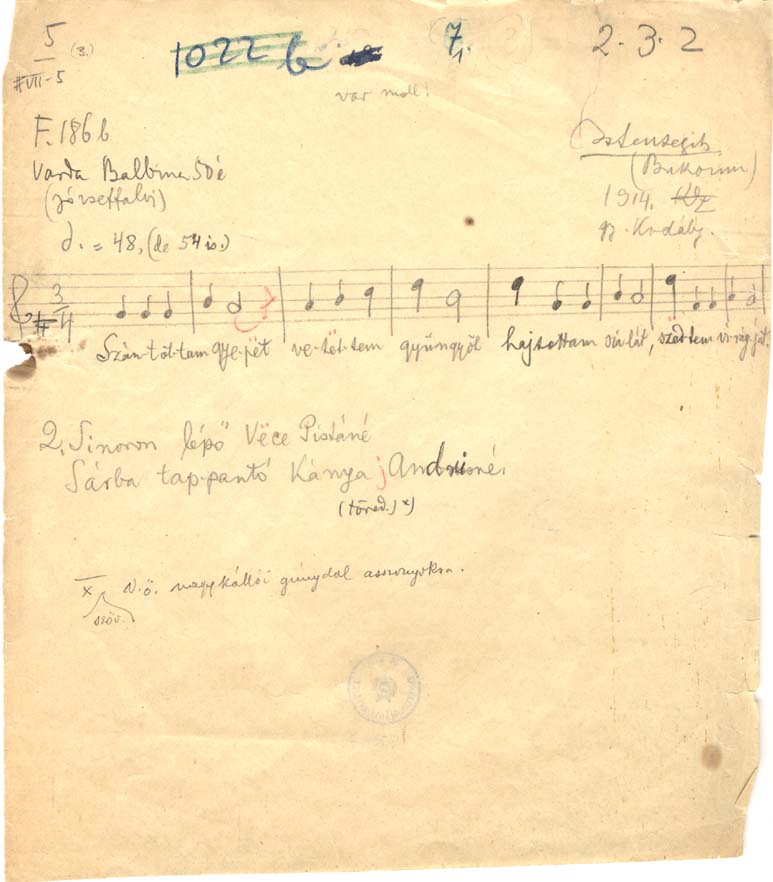 5 (3.)
#VII-5
1022 b
7,
2. 3. 2
var moll!
F. 186 b
Varda Balbina 50 é
(józseffalvi)
Istensegíts
(Bukovina)
1914.
gy. Kodály.
= 48, (de 54 is.)
3
4
Szán-tot-tam gye-pët ve-tët-tem gyüngyöt hajtottam szálát, szëdtem virág-ját.
2. Sinoron lépő Vëce Pistáné
Sárba tap-pantó Kánya j Andrisné.
(töred.) x)
x V.ö. nagykállói gúnydal asszonyokra.
szöv.